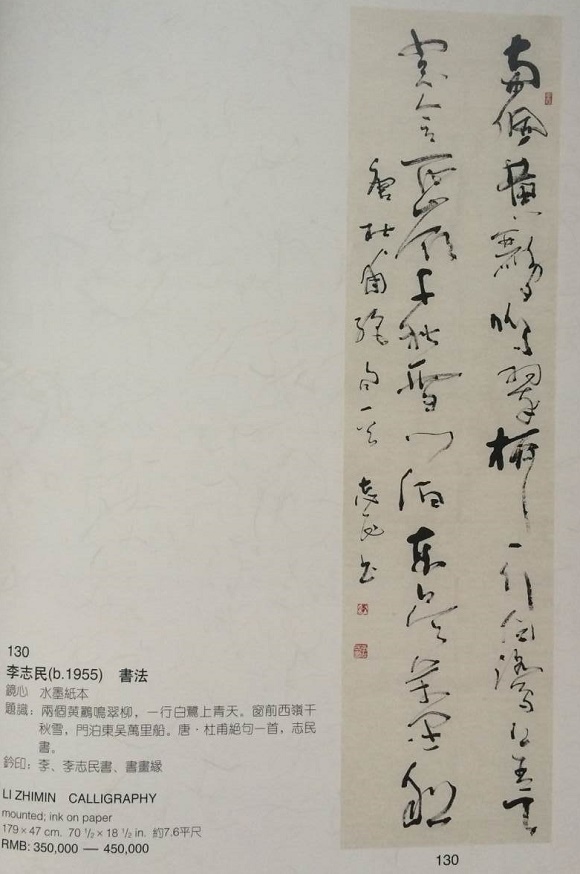 兩個黃鸝鳴翠柳一行白鷺上青天
窗含西嶺千秋雪門泊東吳萬里船
唐杜甫絕句一首 志民書
130
李志民(b.1955) 書法
鏡心 水墨紙本
題識：兩個黃鸝鳴翠柳，一行白鷺上青天。窗前西嶺千
秋雪，門泊東吳萬里船。唐·杜甫絕句一首，志民
書。
鈐印：李、李志民書、書畫緣
LI ZHIMIN CALLIGRAPHY
mounted; ink on paper
179 × 47 cm. 70 1/2 × 18 1/2 in. 約7.6平尺
RMB: 350,000 — 450,000
130